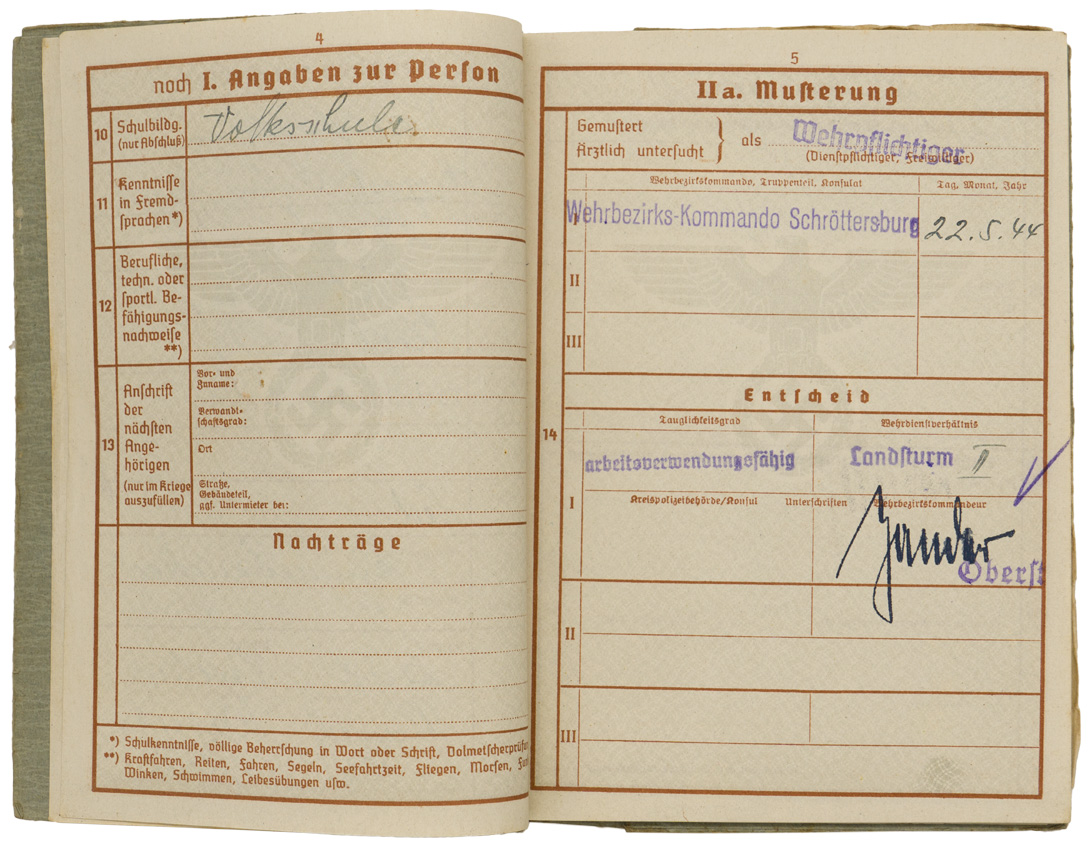 4
noch I. Angaben zur Person
10 Schulbildg. (nur Abschluß)
Volksschule.
11 Kenntnisse in Fremd-
sprachen*)
12 Berufliche,
techn. oder
sportl. Be-
fähigungs-
nachweise
**)
13 Anschrift
der
nächsten
Ange-
hörigen
(nur im Kriege
auszufüllen)
Vor- und
Zuname:
Verwandt-
schaftsgrad:
Ort
Straße,
Gebäudeteil,
ggf. Untermieter bei:
Nachträge
*) Schulkenntnisse, völlige Beherrschung in Wort oder Schrift, Dolmetscherprüfu
**) Kraftfahren, Reiten, Fahren, Segeln, Seefahrtzeit, Fliegen, Morsen, Fun
Winken, Schwimmen, Leibesübungen usw.
5
IIa. Musterung
Gemustert
Ärztlich untersucht } als Wehrpflichtiger
(Dienstpflichtiger, Freiwilliger)
Wehrbezirkskommando, Truppenteil, Konsulat Tag, Monat, Jahr
Wehrbezirks-Kommando Schröttersburg 22.5.44
II
III
Entscheid
14
Tauglichkeitsgrad Wehrdienstverhältnis
arbeitsverwendungsfähig Landsturm II
I
Kreispolizeibehörde/Konsul Unterschriften Wehrbezirkskommandeur
Zander
Oberst
II
III